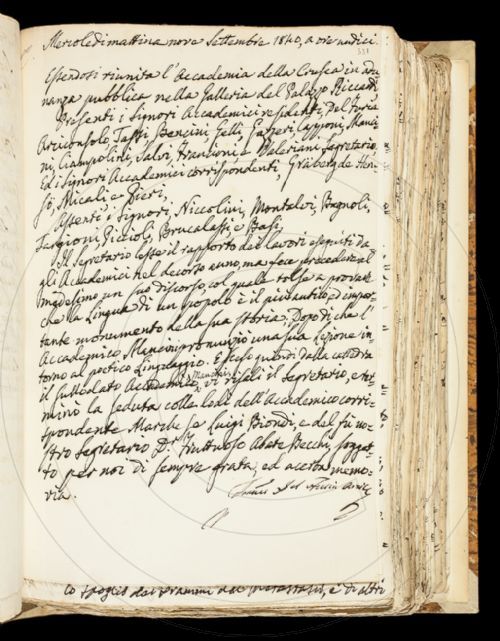 Mercoledì mattina nove Settembre 1840, a ore undici
331
Essendosi riunita l'Accademia della Crusca in adu-
nanza pubblica nella Galleria del Palazzo Riccardi,
Presenti i Signori Accademici residenti, Del Furia
Arciconsolo, Taffi, Bencini, Gelli, Gazzeri, Capponi, Manci-
ni, Ciampolini, Salvi, Franchoni e Valeriani Segretario.
Ed i Signori Accademici corrispondenti, Gräberg de Hem-
sö, Micali e Pieri,
Assenti i Signori, Niccolini, Montalvi, Bagnoli,
Targioni, Puccioli, Brucalassi, e Basi,
Il Segretario lesse il rapporto dei lavori eseguiti da
gli Accademici nel decorso anno, ma fece precedere al
medesimo un suo discorso, col quale tolse a provare
che la Lingua di un popolo è il più antico ed impor-
tante monumento della sua storia; Dopo di che l'
Accademico Mancini pronunziò una sua Lezione in-
torno al poetico Linguaggio. E sceso quindi dalla cattedra
il sullodato Accademico Mancini, vi risalì il Segretario, e ter-
minò la seduta colle lodi dell'Accademico corri-
spondente March.se Luigi Biondi, e del fu no-
stro Segretario D.r Fruttuoso Abate Becchi, sogget-
to per noi di sempre grata, ed acerba memo-
ria.
Franc. Del Furia Arcic.
Lo spoglio dei e di altri